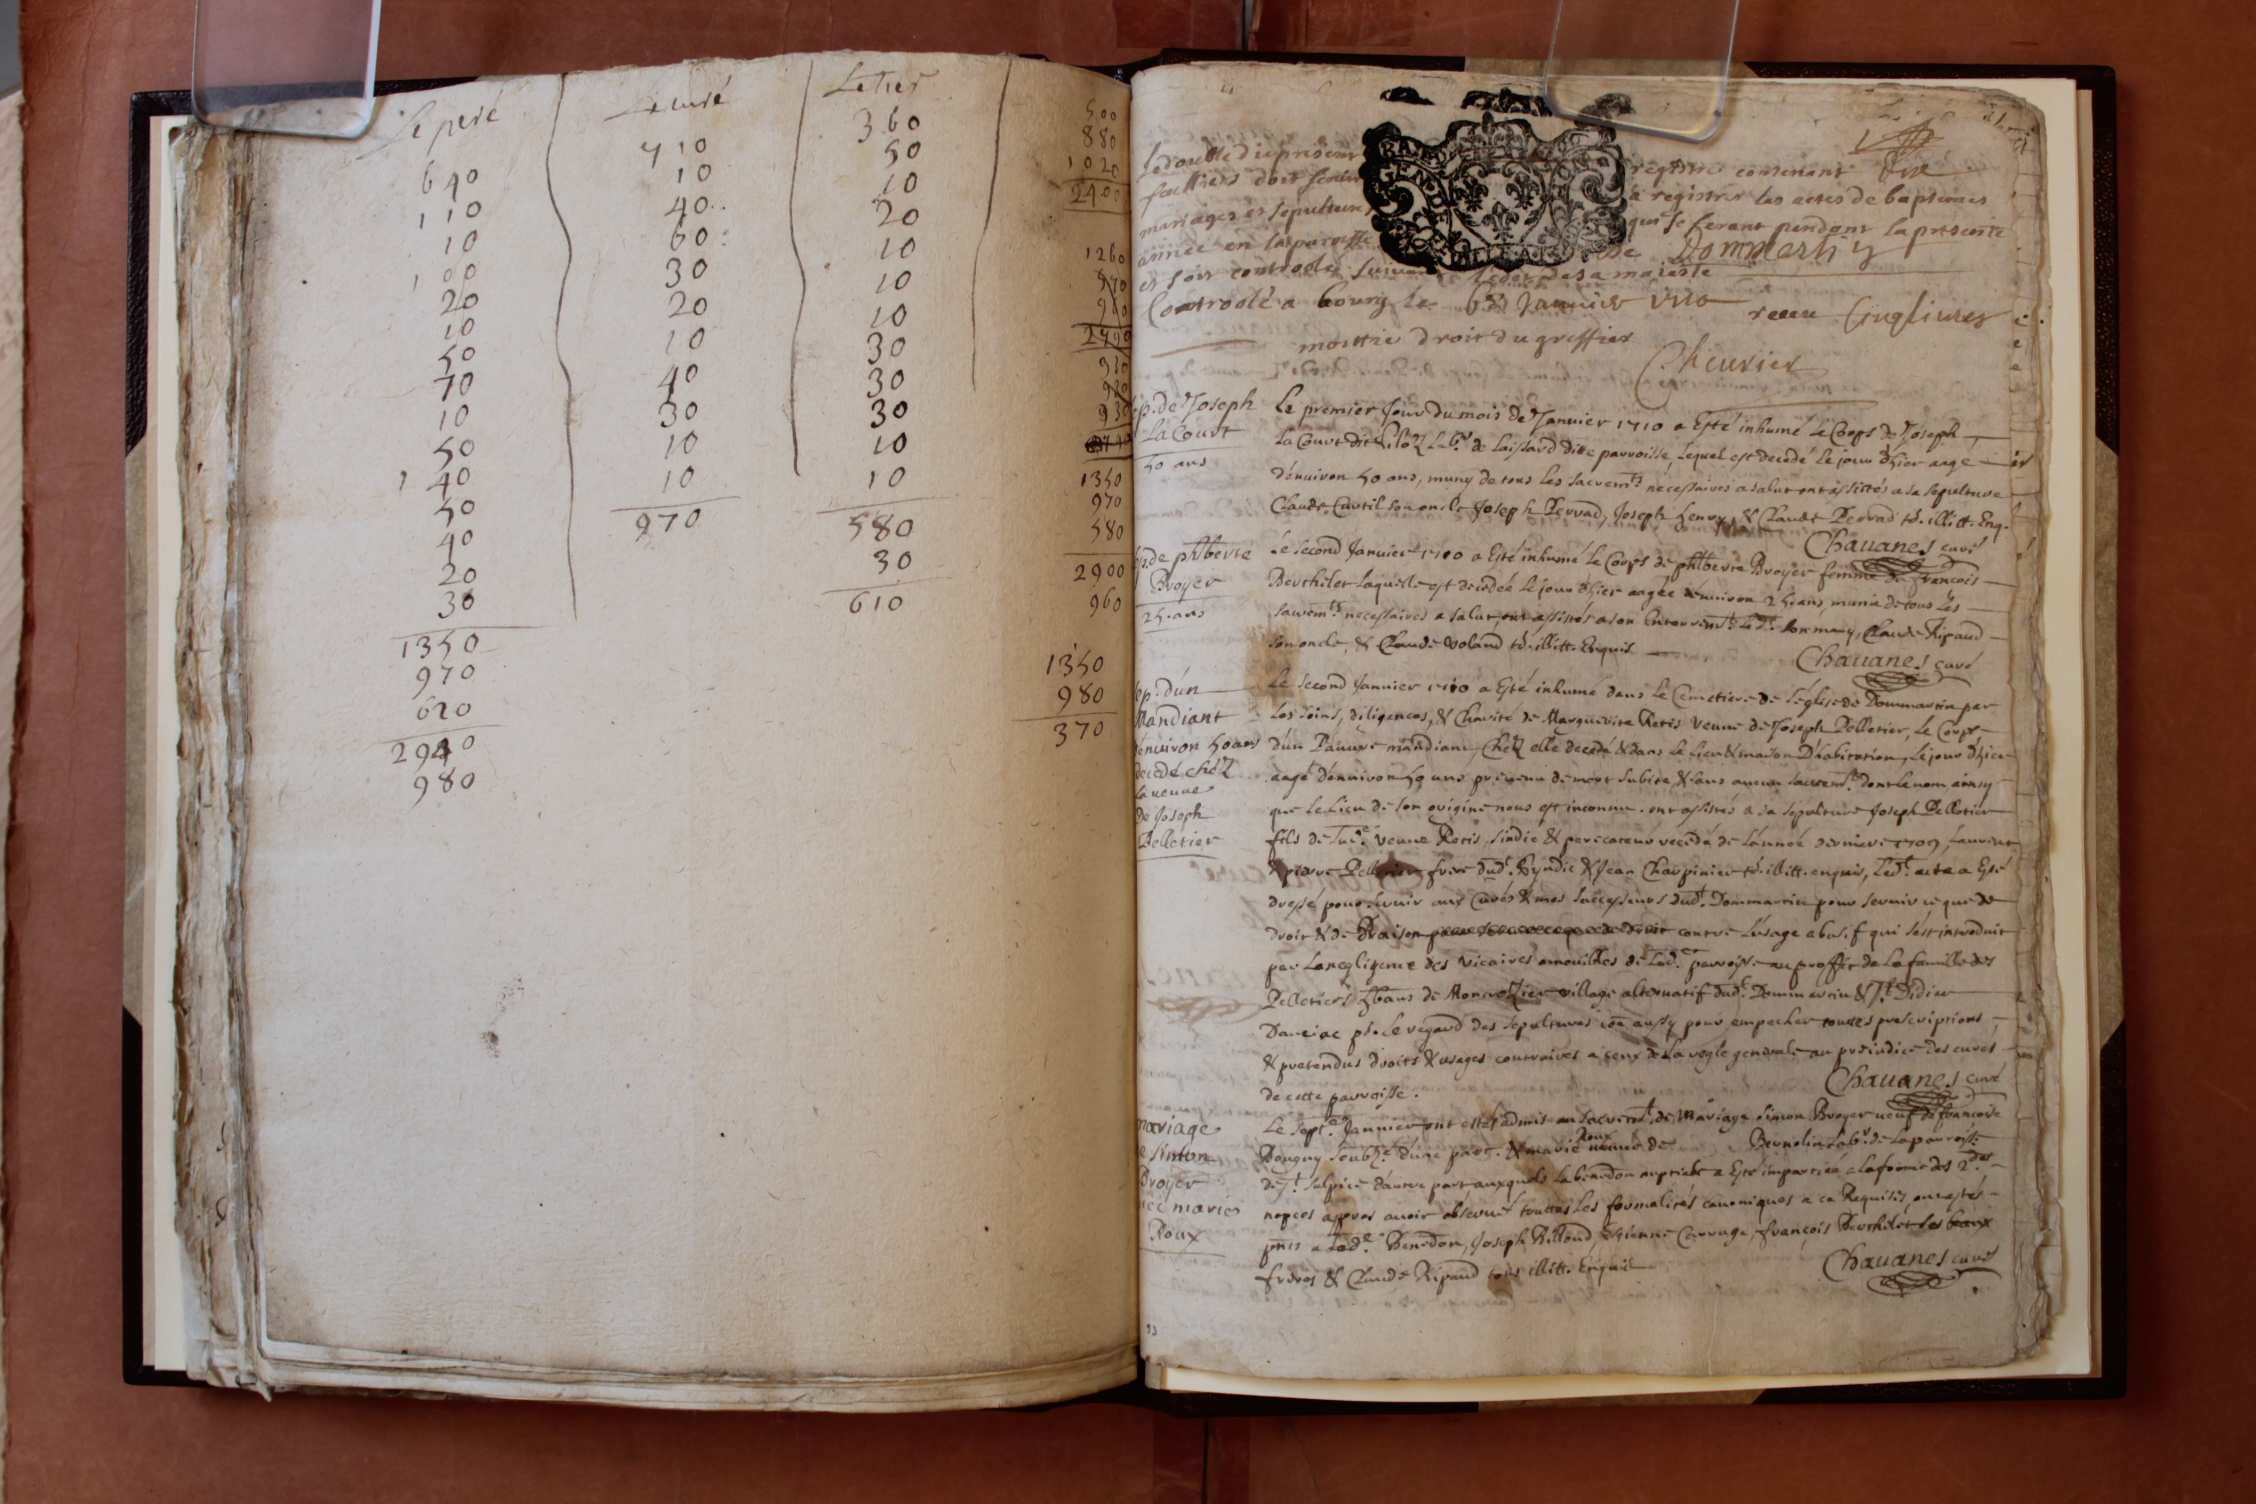 Le peré
640
110
10
100
20
10
50
70
10
50
1 40
50
40
20
30
1350
970
620
2940
980
Le curé
710
10
40
60
30
20
10
40
30
10
10
970
Le tier
360
50
10
20
10
10
10
30
30
30
10
10
580
30
610
500
880
1020
2400
1260
970
2790
930
1350
970
580
2900
960
1350
980
370
registre contenant
feulliets doit servir a registrer les actes de baptemes
mariages et sepultures qui se feront pendant la presente
année en la paroisse de Dommartin
et sont controolé suivant de sa majeste
Controolé a bourg le 6 Janvier 1710 receu Cinq livres
moittie droit du greffier
Cheurier
sep. de Joseph
La Court
50 ans
Le premier Jour du mois de Janvier 1710 a Esté inhumé Le Corps de Joseph
La Court dit de Laissard ditte parroisse, lequel est decedé le jour d'hier aagé
d'environ 50 ans, muny de tous les sacremts necessaires a salut ont assistés a sa sepulture
Claude Curtil son oncle Joseph Perrad, Joseph henry, & Claude Perrad ts. illitt. Enq.
Chauanes curé
sep. de philberte
Broyer
25. ans
Le second Janvier 1710 a Esté inhumé Le Corps de philberte Broyer femme de francois
Berthelet laquelle est decedée le jour d'hier aagée d'environ 25 ans, munie de tous les
sacremts necessaires a salut, ont assistés a son Enterremt. led. son mary, Claude Ripaud
son oncle, & Claude Voland ts. illitt. Enquis
Chauanes curé
sep. d'un
Mandiant
d'environ 50 ans
decedé chéz
la veuve
de Joseph
Pelletier
Le second Janvier 1710 a Esté inhumé dans Le Cemetiere de l'église de Dommartin par
les soins, diligences, & Charité de Marguerite Retis veuve de Joseph Pelletier, Le Corps
d'un Pauvre mandiant, Chéz elle decedé & dans le lieu & maison D'habitation, le jour d'hier
aagé d'environ 50 ans prevenu de mort subite, & sans aucun sacremt. dont le nom ainsy
que le Lieu de son origine nous est inconnu. ont assistés a sa sepulture Joseph Pelletier
fils de lad. veuve Retis, sindic & de l'année derniere 1709, Laurent
& pierre Pelletier frere dud. Syndic & Jean Charpinier ts. illitt. enquis, Led. acte a Esté
dressé pour servir aux Curés & mes successeurs dud. Dommartin pour servir ce que de
droit & de Raison contre l'usage abusif qui s'est introduit
par la negligence des Vicaires amovibles de lad. parroisse au proffit de la famille des
Pelletiers hbans de village alternatif dud. Dommartin & St. Didier
le regard des sepultures aussy pour empecher touttes prescriptions
& pretendus droits & usages contraires a ceux de la regle generale au preiudice des curés
de cette parroisse.
Chauanes curé
mariage
de Simon
Broyer
avec marie
Roux
Le sept. Janvier ont estés admis au sacremt. de Mariage Simon Broyer veuf de francoise
d'une part. & marie Roux veuve de Bernolin Labr. de la parroisse
de St. Sulpice d'autre part auxquels La benedon nuptiale a Esté impartiée a la forme des 2des
nopces appres avoir observé touttes les formalités canoniques a ce Requises, ont estés
pnts a lad. Benedon, Joseph Billoud, Etienne Carruge, françois Berthelet les beaux
freres & Claude Ripaud tous illitt. Enquis
Chauanes curé